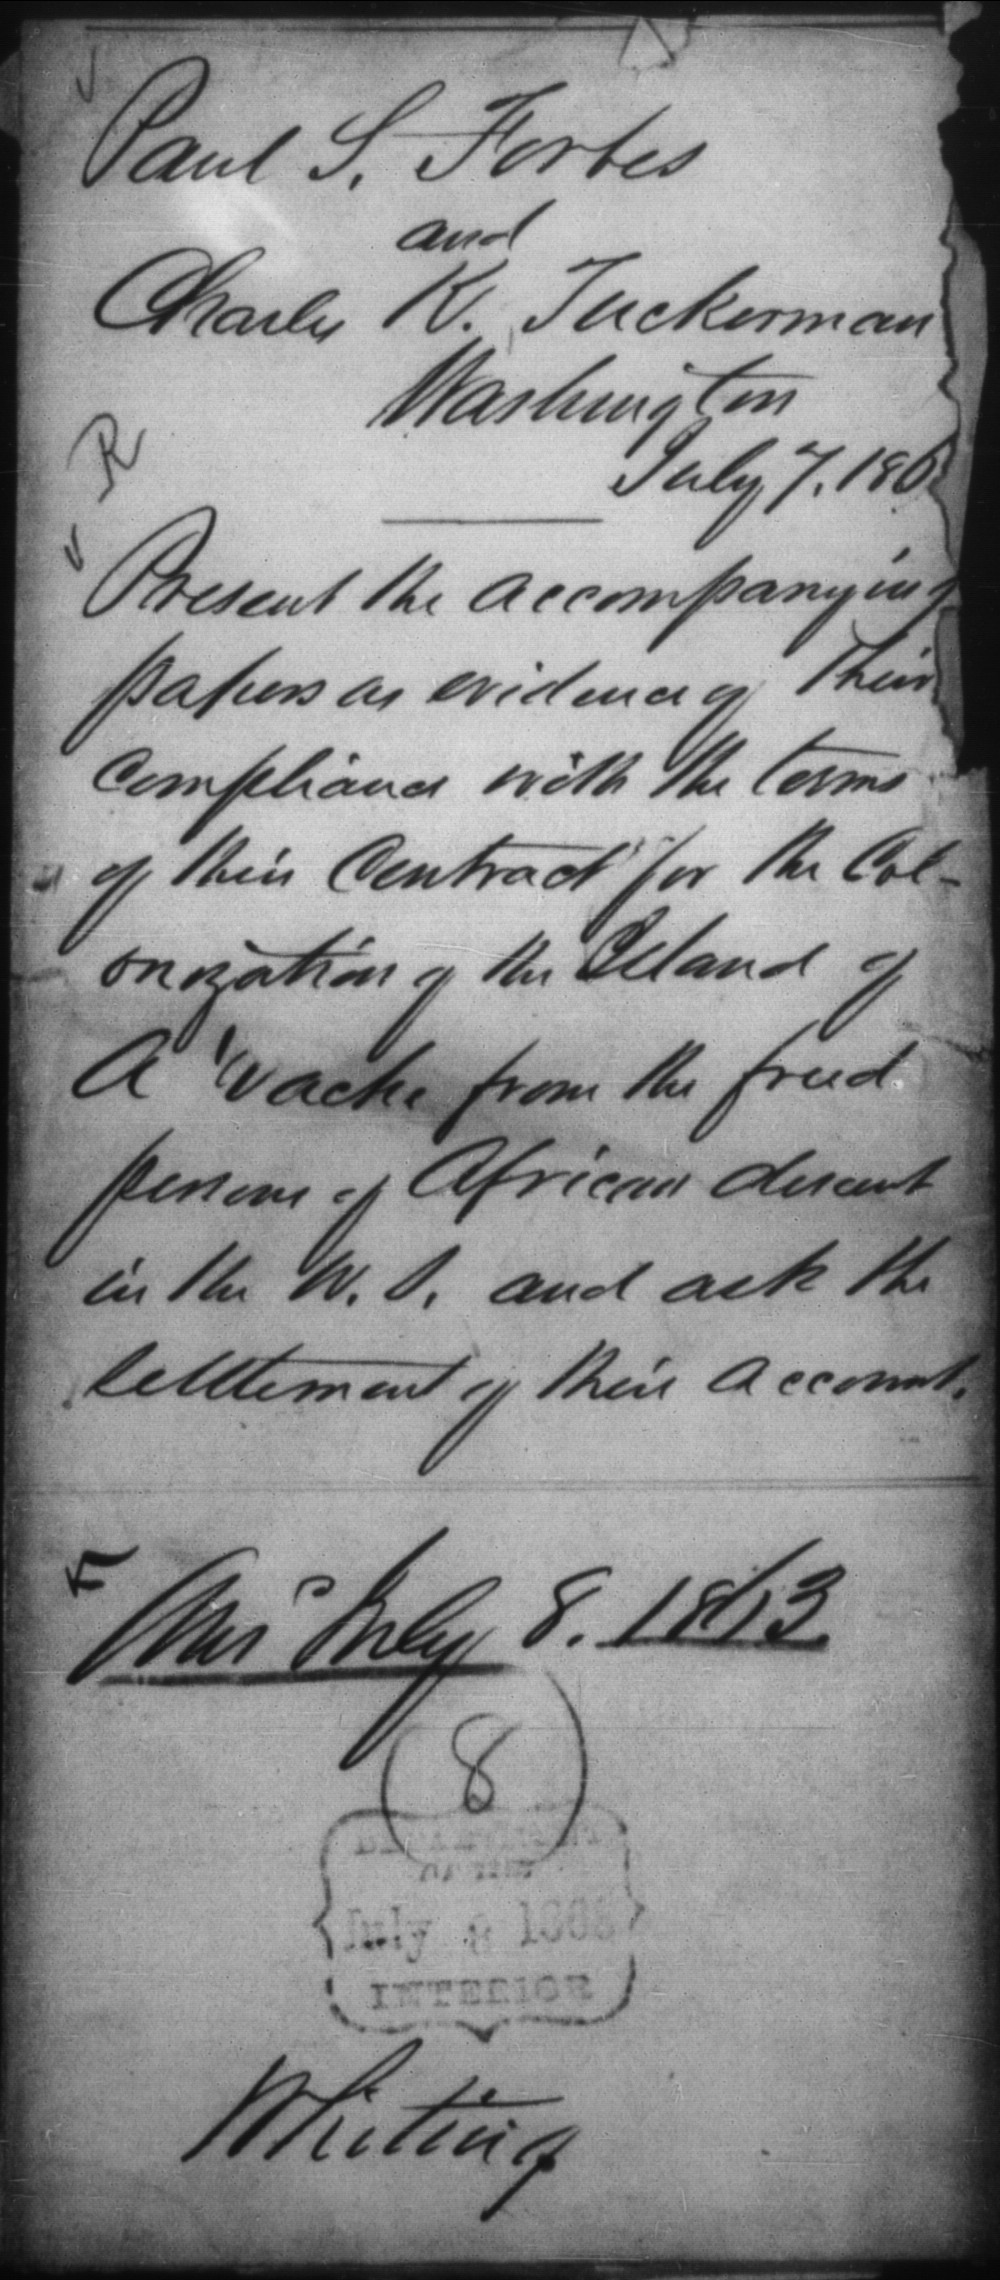 Paul S. Forbes
and
Charles K. Tuckerman
Washington
July 7. 186
R
Present the accompanying
papers as evidence of their
compliance with the terms
of their Contract for the Col-
onization of the Island of
A'Vache from the freed
persons of African descent
in the W. S. and ask the
settlement of their account.
July 8. 1863
8
DEPARTMENT
OF THE
July 8 1863
INTERIOR
Whiting